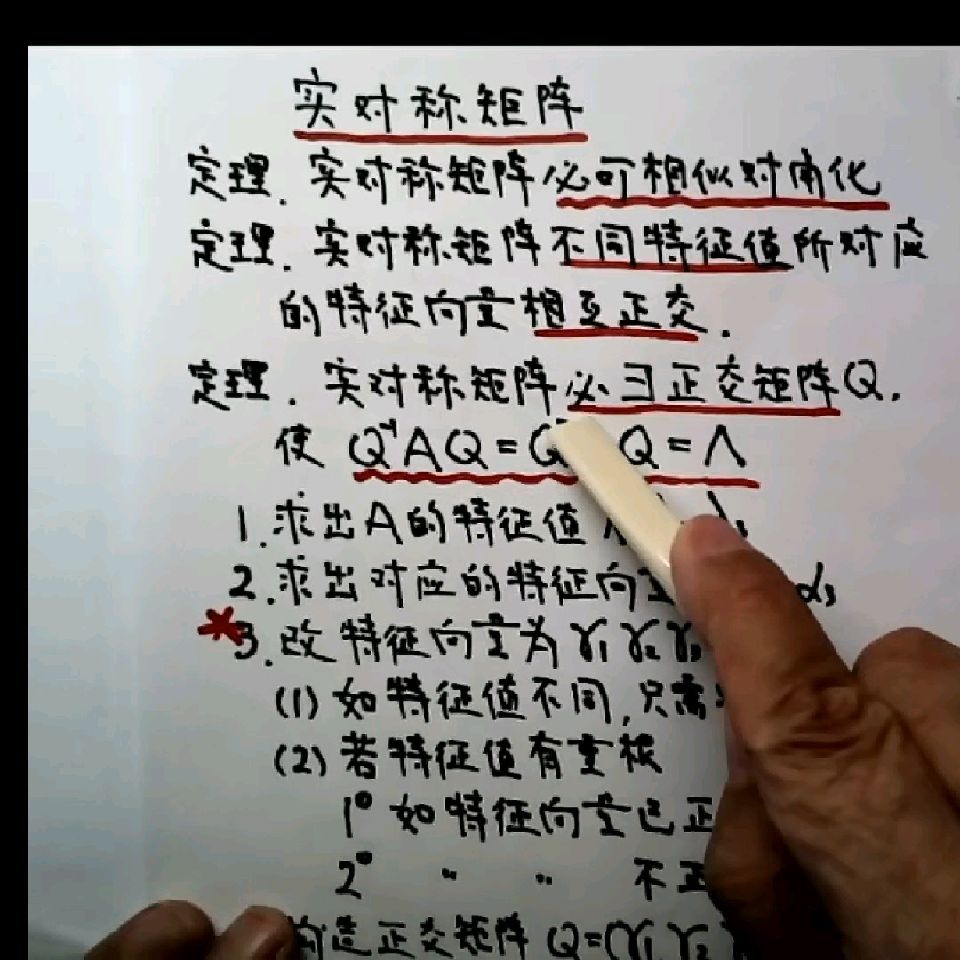 实对称矩阵
定理. 实对称矩阵必可相似对角化
定理. 实对称矩阵不同特征值所对应
的特征向量相互正交.
定理. 实对称矩阵必∃正交矩阵Q.
使 Q⁻¹AQ = Q Q = Λ
1. 求出A的特征值
2. 求出对应的特征向量 α₃
*3. 改特征向量为 γ₁ γ₂ γ₃
(1) 如特征值不同, 只需
(2) 若特征值有重根
1° 如特征向量已正
2° 〃 〃 不正
构造正交矩阵 Q=(γ₁ γ₂